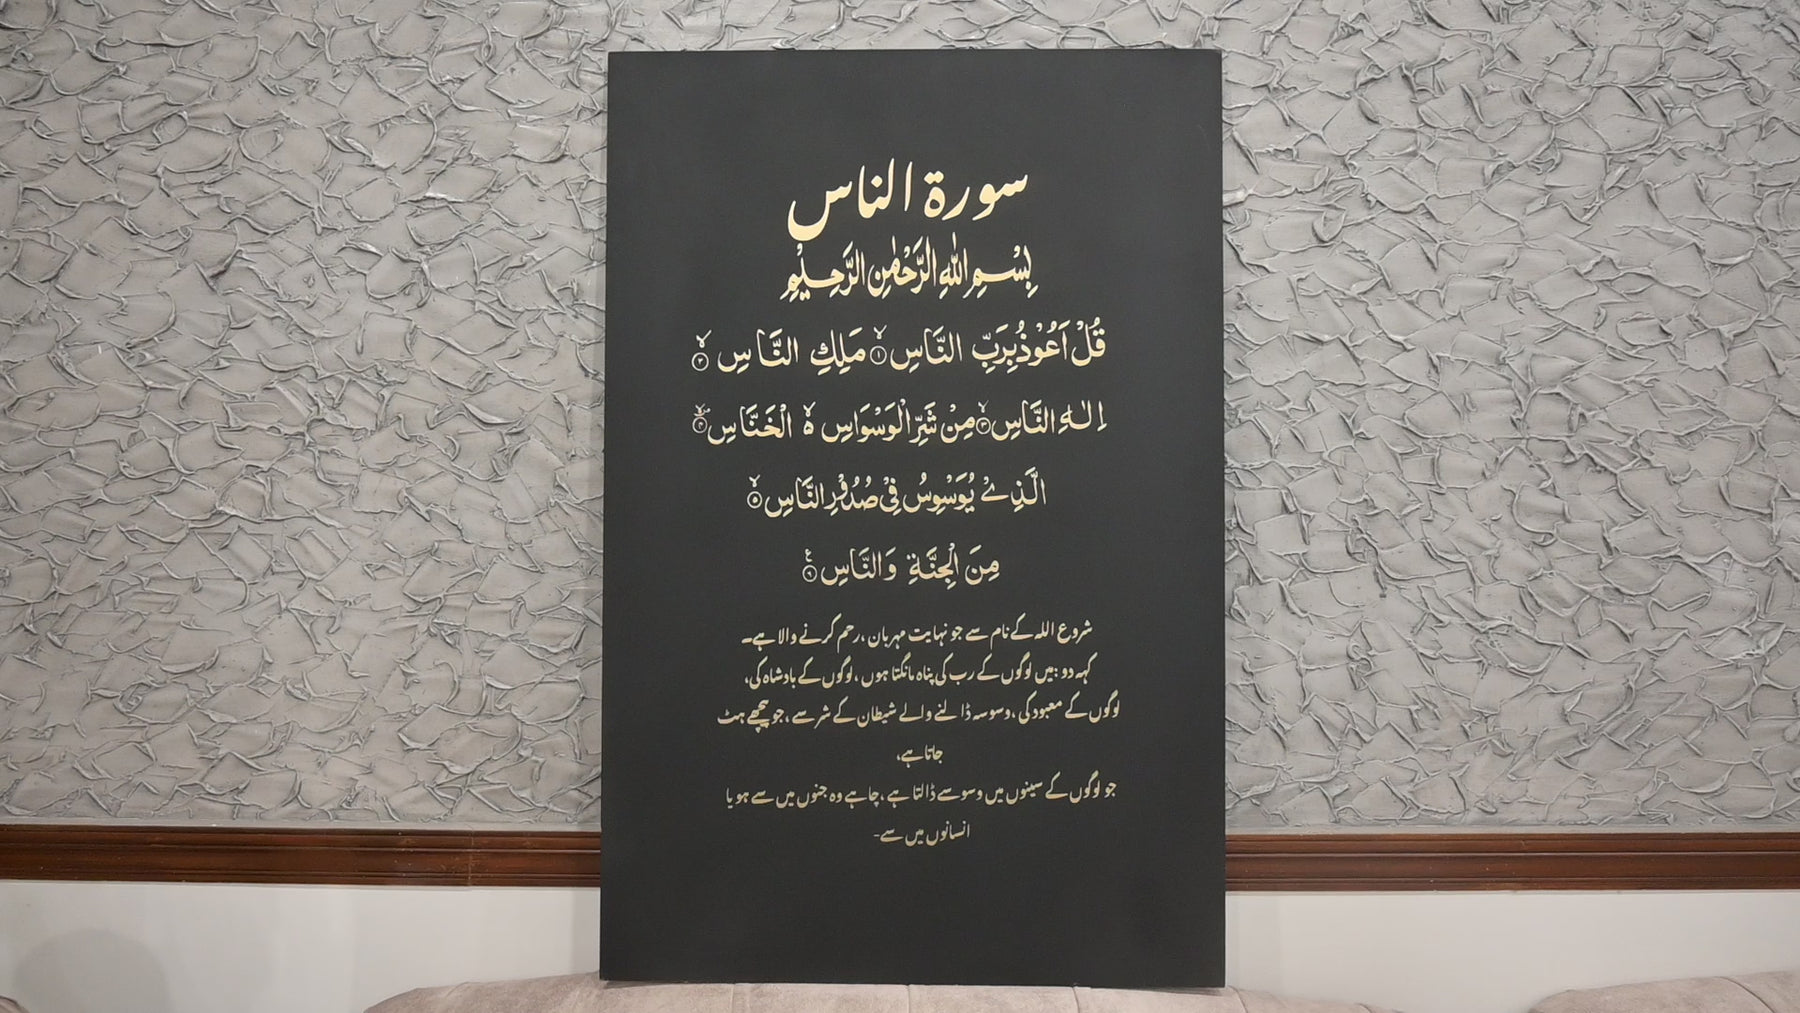 سورة الناس
بِسْمِ اللّٰهِ الرَّحْمٰنِ الرَّحِيْمِ
قُلْ اَعُوْذُ بِرَبِّ النَّاسِ ۙ﴿۱﴾ مَلِكِ النَّاسِ ۙ﴿۲﴾
اِلٰهِ النَّاسِ ۙ﴿۳﴾ مِنْ شَرِّ الْوَسْوَاسِ ۙ۬ الْخَنَّاسِ ۪ۙ﴿۴﴾
الَّذِىْ يُوَسْوِسُ فِىْ صُدُوْرِ النَّاسِ ۙ﴿۵﴾
مِنَ الْجِنَّةِ وَالنَّاسِ ﴿۶﴾
شروع اللہ کے نام سے جو نہایت مہربان، رحم کرنے والا ہے۔
کہہ دو: میں لوگوں کے رب کی پناہ مانگتا ہوں، لوگوں کے بادشاہ کی،
لوگوں کے معبود کی، وسوسہ ڈالنے والے شیطان کے شر سے، جو پیچھے ہٹ
جاتا ہے،
جو لوگوں کے سینوں میں وسوسے ڈالتا ہے، چاہے وہ جنوں میں سے ہو یا
انسانوں میں سے-